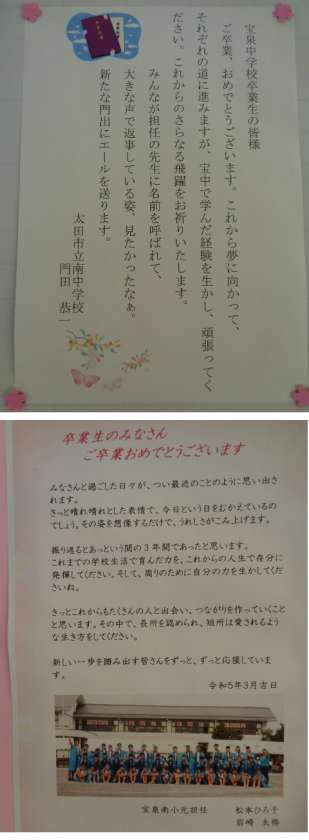 宝泉中学校卒業生の皆様
ご卒業、おめでとうございます。これから夢に向かって、
それぞれの道に進みますが、宝中で学んだ経験を生かし、頑張ってく
ださい。これからのさらなる飛躍をお祈りいたします。
みんなが担任の先生に名前を呼ばれて、
大きな声で返事している姿、見たかったなぁ。
新たな門出にエールを送ります。
太田市立南中学校
門田 恭一
卒業生のみなさん
ご卒業おめでとうございます
みなさんと過ごした日々が、つい最近のことのように思い出さ
れます。
きっと晴れ晴れとした表情で、今日という日をむかえているの
でしょう。その姿を想像するだけで、うれしさがこみ上げます。
振り返るとあっという間の3年間であったと思います。
これまでの学校生活で育んだ力を、これからの人生で存分に
発揮してください。そして、周りのために自分の力を生かしてくだ
さいね。
きっとこれからもたくさんの人と出会い、つながりを作っていくこと
と思います。その中で、長所を認められ、短所は愛されるよう
な生き方をしてください。
新しい一歩を踏み出す皆さんをずっと、ずっと応援していま
す。
令和5年3月吉日
宝泉南小元担任 松本ひろ子
岩崎